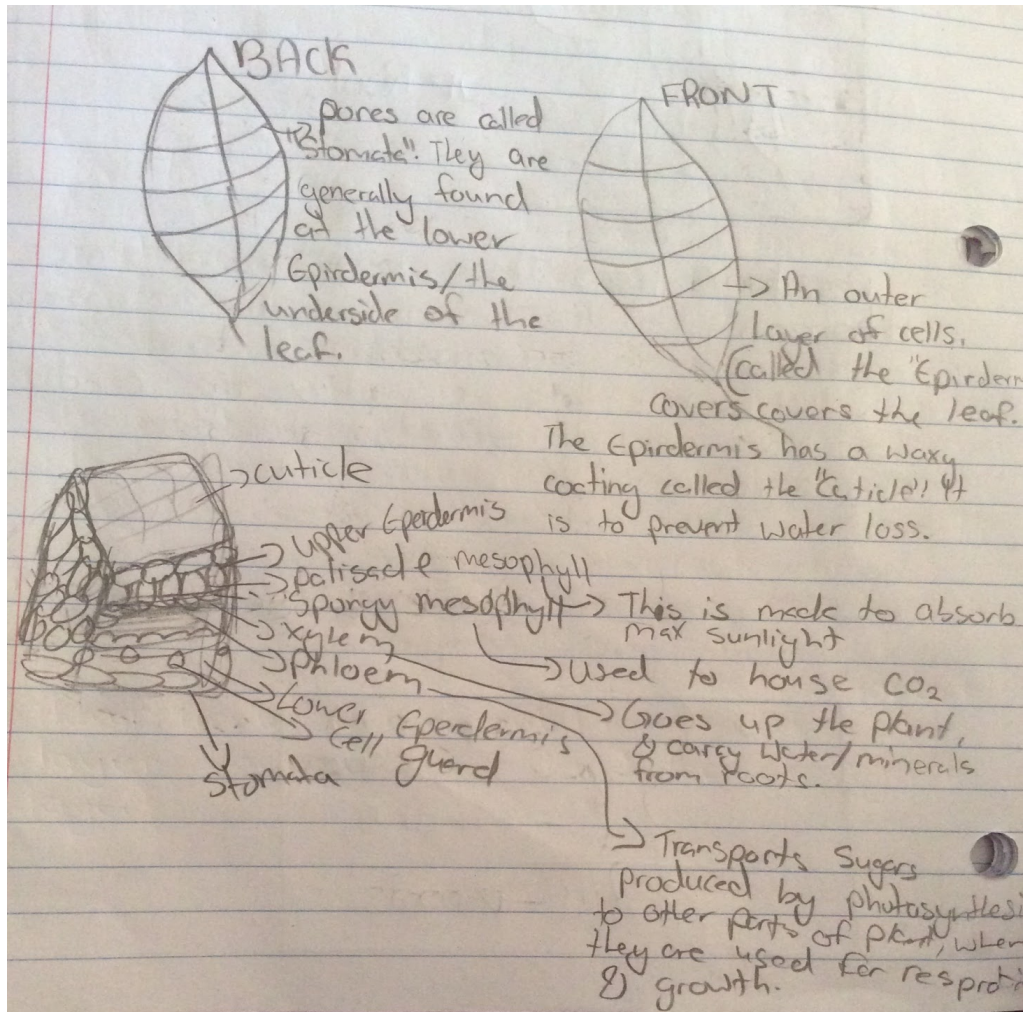 BACK
pores are called
"Stomata". They are
generally found
at the lower
Epirdermis/the
underside of the
leaf.
FRONT
An outer
layer of cells,
called the "Epirderm
covers covers the leaf.
The Epirdermis has a waxy
coating called the "Cuticle"! It
is to prevent water loss.
cuticle
upper Eperdermis
palisade mesophyll
Spongy mesophyll → This is made to absorb
max sunlight
xylem
phloem
used to house CO₂
Lower Eperdermis
Cell guard
Stomata
Goes up the plant,
& carry water/minerals
from roots.
Transports sugars
produced by photosynthesi
to other parts of plant, wher
they are used for resprati
& growth.